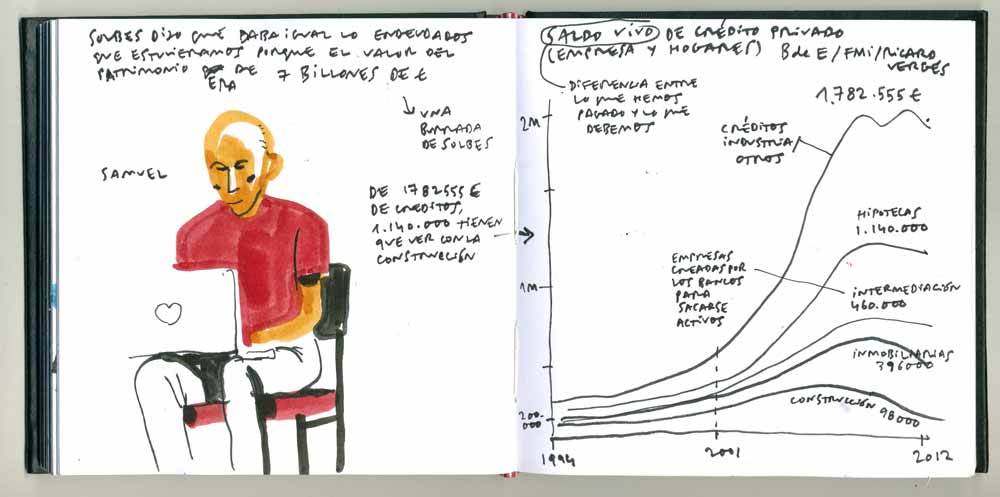 SOLBES DIJO QUE DABA IGUAL LO ENDEUDADOS
QUE ESTUVIERAMOS PORQUE EL VALOR DEL
PATRIMONIO ERA DE 7 BILLONES DE €
UNA
BURRADA
DE SOLBES
SAMUEL
DE 1782555 €
DE CRÉDITOS,
1.140.000 TIENEN
QUE VER CON LA
CONSTRUCCIÓN
SALDO VIVO DE CRÉDITO PRIVADO
(EMPRESA Y HOGARES) B de E/FMI/RICARD
VERGÉS
DIFERENCIA ENTRE
LO QUE HEMOS
PAGADO Y LO QUE
DEBEMOS
1.782.555 €
2M
CRÉDITOS
INDUSTRIA/
OTROS
HIPOTECAS
1.140.000
EMPRESAS
CREADAS POR
LOS BANCOS
PARA
SACARSE
ACTIVOS
1M
INTERMEDIACIÓN
460.000
INMOBILIARIAS
396000
CONSTRUCCIÓN 98000
200.
000
1994
2001
2012